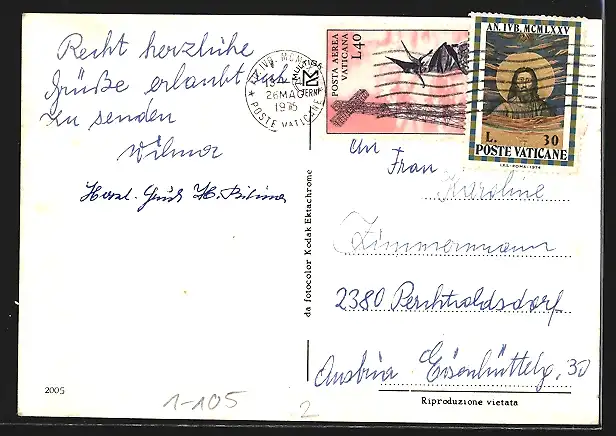 Recht herzliche
Grüße erlaubt sich
zu senden
Wilma
Herzl. Grüß H.
POSTA AEREA
VATICANA
L.40
26 MAG
1975
POSTE VATICANE
AN. IVB. MCMLXXV
L. 30
POSTE VATICANE
I.P.S.-ROMA-1974
An
Frau
Karoline
Zimmermann
2380 Perchtoldsdorf
Austria Eisenhüttelg. 30
da fotocolor Kodak Ektachrome
2005
1-105
2
Riproduzione vietata